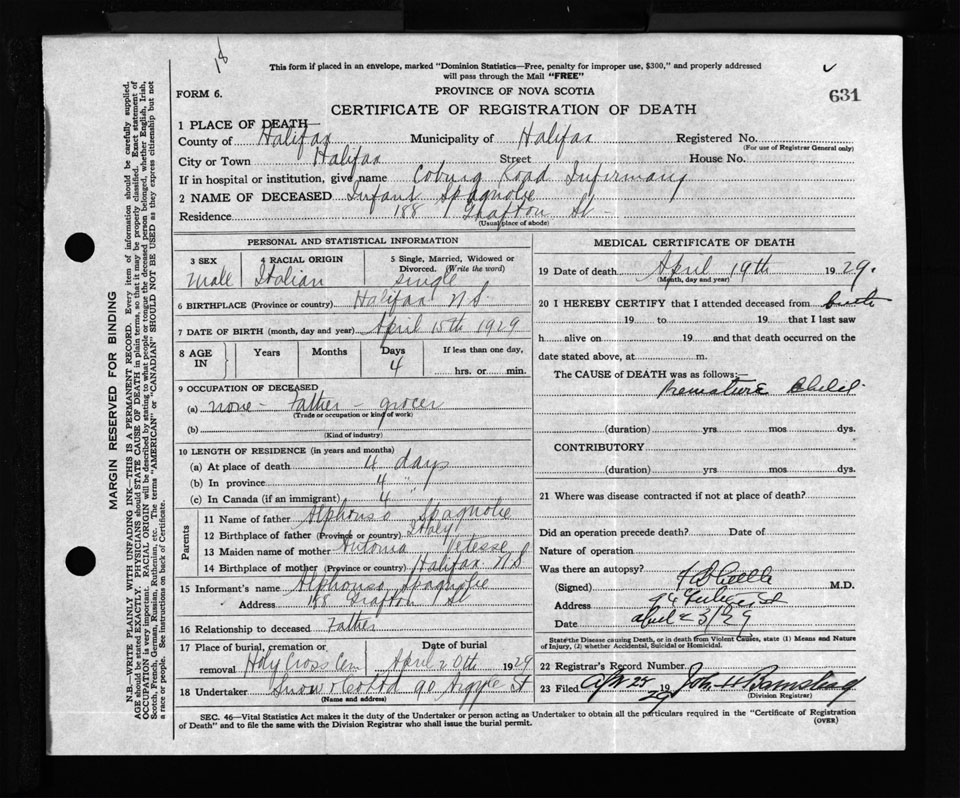 18
This form if placed in an envelope, marked "Dominion Statistics—Free, penalty for improper use, $300," and properly addressed
will pass through the Mail "FREE"
FORM 6.
PROVINCE OF NOVA SCOTIA
631
CERTIFICATE OF REGISTRATION OF DEATH
1 PLACE OF DEATH—
County of Halifax Municipality of Halifax Registered No.
(For use of Registrar General only)
City or Town Halifax Street House No.
If in hospital or institution, give name Coburg Road Infirmary
2 NAME OF DECEASED Infant Spagnolie
Residence 188 Grafton St-
(Usual place of abode)
PERSONAL AND STATISTICAL INFORMATION
3 SEX
Male
4 RACIAL ORIGIN
Italian
5 Single, Married, Widowed or
Divorced. (Write the word)
single
6 BIRTHPLACE (Province or country) Halifax N.S.
7 DATE OF BIRTH (month, day, and year) April 15th 1929
8 AGE
IN
Years
Months
Days
4
If less than one day,
hrs. or min.
9 OCCUPATION OF DECEASED
(a) none - Father - grocer
(Trade or occupation or kind of work)
(b)
(Kind of industry)
10 LENGTH OF RESIDENCE (in years and months)
(a) At place of death 4 days
(b) In province 4 "
(c) In Canada (if an immigrant) 4 "
Parents
11 Name of father Alphonso Spagnolie
12 Birthplace of father (Province or country) Italy
13 Maiden name of mother Antonia
14 Birthplace of mother (Province or country) Halifax N.S
15 Informant's name Alphonso Spagnolie
Address 188 Grafton St
16 Relationship to deceased Father
17 Place of burial, cremation or
removal Holy Cross Cem
Date of burial
April 20th 1929
18 Undertaker Snow & Co Ltd 90 Argyle St
(Name and address)
MEDICAL CERTIFICATE OF DEATH
19 Date of death April 19th 1929.
(Month, day and year)
20 I HEREBY CERTIFY that I attended deceased from birth
19 to 19 that I last saw
h alive on 19 and that death occurred on the
date stated above, at m.
The CAUSE of DEATH was as follows:—
Premature Child
(duration) yrs mos dys.
CONTRIBUTORY
(duration) yrs mos dys.
21 Where was disease contracted if not at place of death?
Did an operation precede death? Date of
Nature of operation
Was there an autopsy?
(Signed) M.D.
Address St
Date April 23/29
State the Disease causing Death, or in death from Violent Causes, state (1) Means and Nature
of Injury, (2) whether Accidental, Suicidal or Homicidal.
22 Registrar's Record Number
23 Filed Apr 25 1929 John H
(Division Registrar)
SEC. 46—Vital Statistics Act makes it the duty of the Undertaker or person acting as Undertaker to obtain all the particulars required in the "Certificate of Registration
of Death" and to file the same with the Division Registrar who shall issue the burial permit.
(OVER)
MARGIN RESERVED FOR BINDING
N.B.—WRITE PLAINLY WITH UNFADING INK—THIS IS A PERMANENT RECORD. Every item of information should be carefully supplied.
AGE should be stated EXACTLY. PHYSICIANS should STATE CAUSE OF DEATH in plain terms, so that it may be properly classified. Exact statement of
OCCUPATION is very important. RACIAL ORIGIN will be described by stating to what people or tongue the deceased person belonged, whether English, Irish,
Scotch, French, German, Russian, Ruthenian, etc. The terms "AMERICAN" or "CANADIAN" SHOULD NOT BE USED as they express citizenship but not
a race or people. See instructions on back of Certificate.